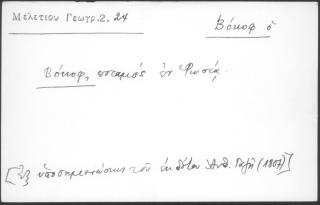 Μελετίου Γεωγρ. 2, 24
Βόκοφ ὁ
Βόκοφ, ποταμὸς ἐν Ῥωσίᾳ.
[Ἐξ ὑποσημειώσεως τοῦ ἐκδότου Ἀνθ. Γαζῆ (1807)]